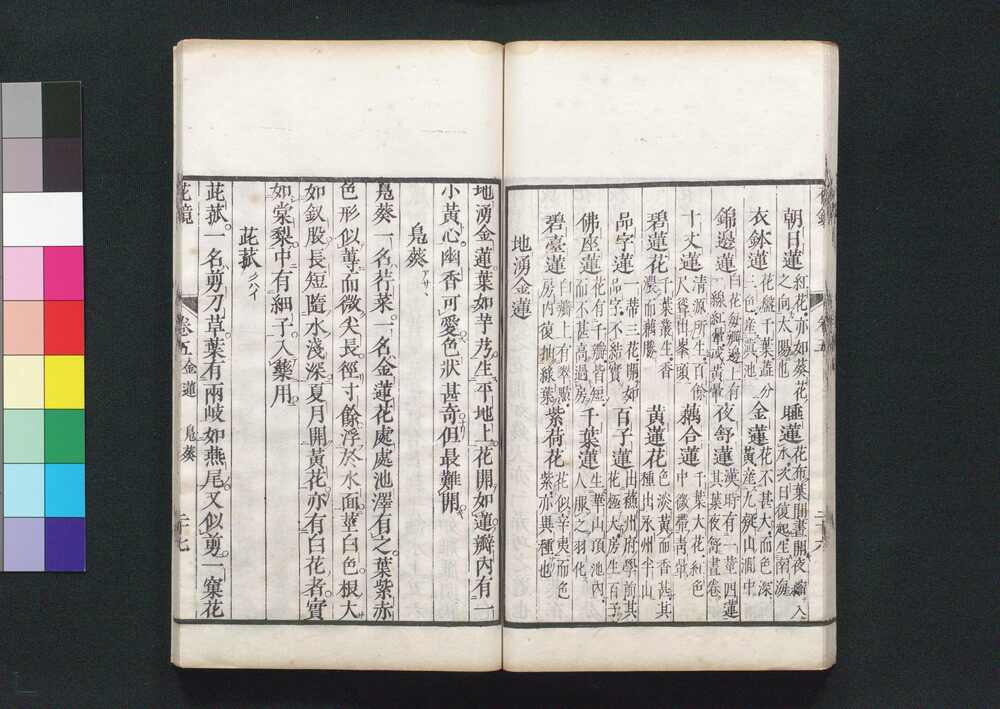 朝日蓮 紅花亦如葵花之向太陽也 睡蓮 花布葉間晝開夜縮入水次日復起生南海
衣鉢蓮 花盤千葉蘂分三色產滇池 金蓮 花不甚大而色深黃產九疑山澗中
錦邊蓮 白花每瓣邊上有一線紅暈或黃暈 夜舒蓮 漢時有一莖四蓮其葉夜舒晝卷
十丈蓮 清源所生百餘尺聳出峯頭 藕合蓮 千葉大花紅色中微帶青暈
碧蓮花 千葉叢生香濃而藕勝 黃蓮花 色淡黃而香甚其種出永州半山
品字蓮 一蒂三花開如品字不結實 百子蓮 出蘓州府學前其花極大房生百子
佛座蓮 花有千瓣皆短而不甚高過房 千葉蓮 生華山頂池內人服之羽化
碧臺蓮 白瓣上有翠點房內復抽綠葉 紫荷花 花似辛夷而色紫亦異種也
地湧金蓮
地湧金蓮。葉如芋艿。生平地上。花開如蓮瓣。內有一
小黃心。幽香可愛。色狀甚奇。但最難開。
鳧葵 アサヽ
鳧葵一名荇菜。一名金蓮花。處處池澤有之。葉紫赤
色形似蓴而微尖長。徑寸餘。浮於水面。莖白色。根大
如釵股。長短隨水淺深。夏月開黃花。亦有白花者。實
如棠梨。中有細子。入藥用。
茈菰 クハイ
茈菰。一名剪刀草。葉有兩岐如燕尾。又似剪。一窠花
花鏡 卷五 金蓮 鳧葵 二十七